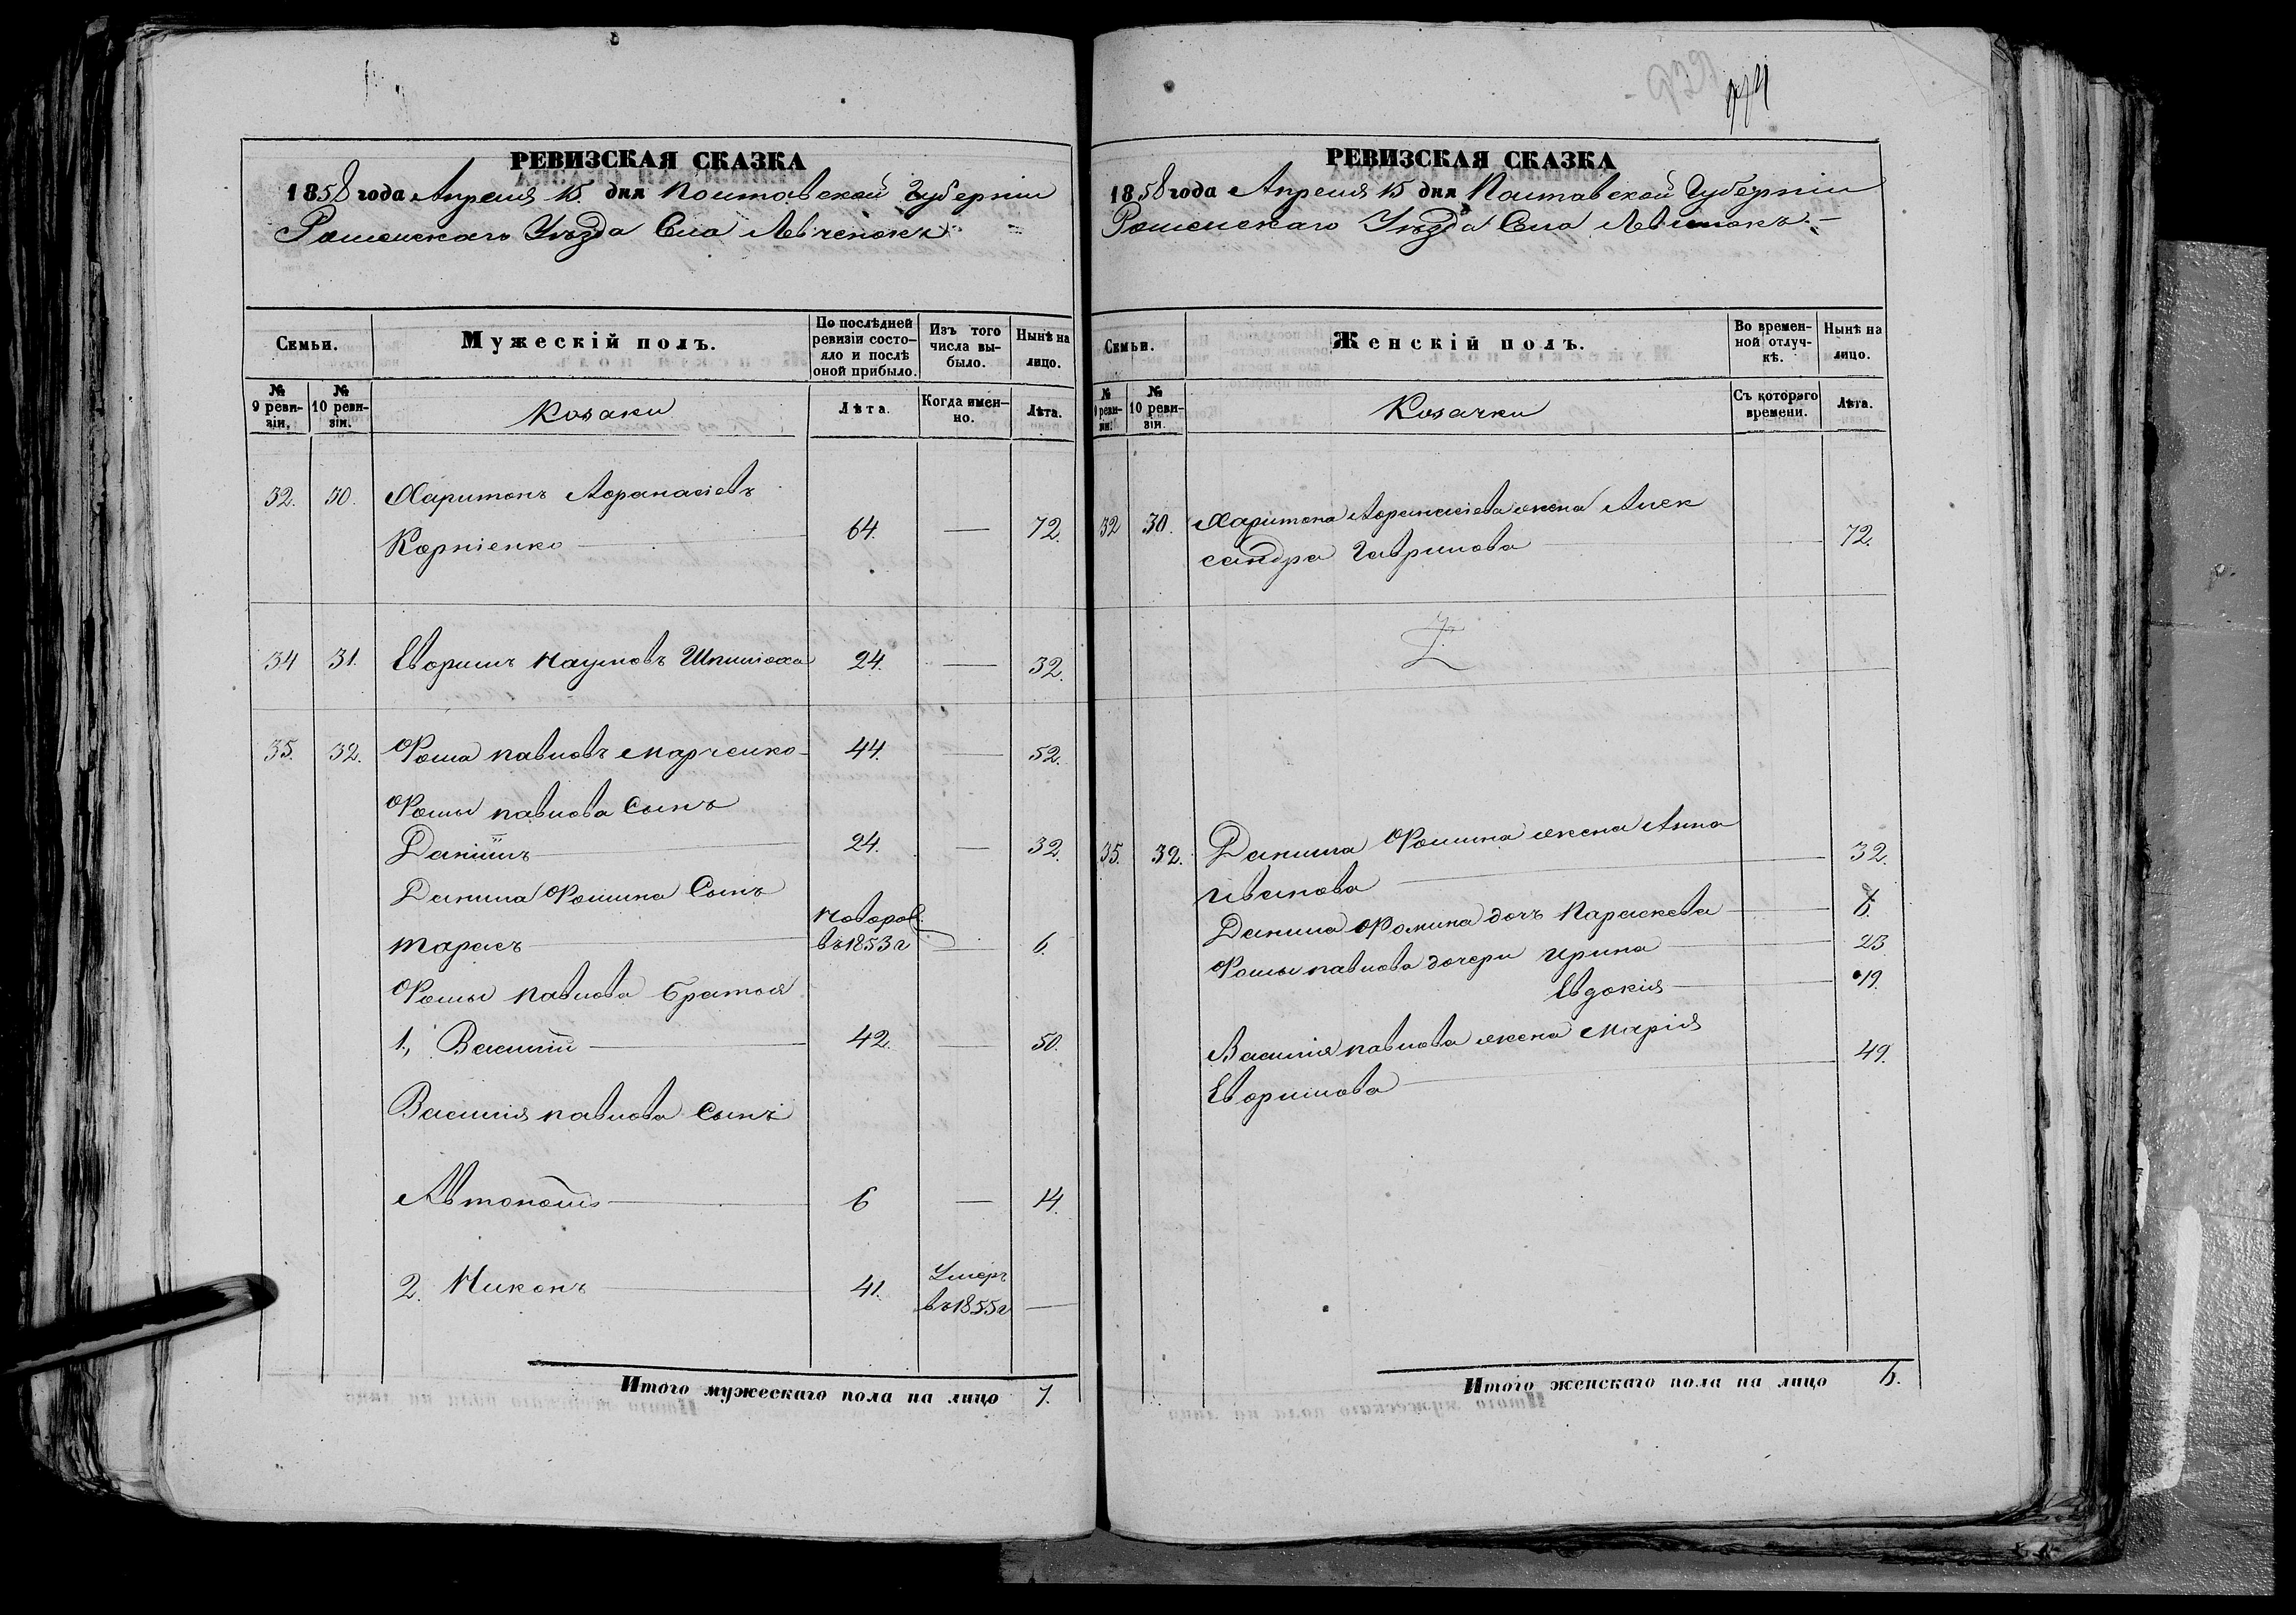 РЕВИЗСКАЯ СКАЗКА
1858 года Апреля 15 дня Полтавской Губерніи
Роменскаго Уѣзда Села Левченокъ
Семьи.
Мужескій полъ.
По послѣдней ревизіи состояло и послѣ оной прибыло.
Изъ того числа выбыло.
Нынѣ на лицо.
№ 9 ревизіи.
№ 10 ревизіи.
Козаки
Лѣта.
Когда именно.
Лѣта.
32. 30. Харитонъ Афанасіевъ
Корніенко 64. — 72.
34 31. Ефримъ Наумовъ Шпилоха 24. — 32.
35. 32. Фома Павловъ Марченко 44. — 52.
Фомы Павлова Сынъ
Даніилъ 24. — 32.
Данила Фомина Сынъ
Тарасъ новорож. въ 1853 г — 6.
Фомы Павлова братья
1., Василій 42. — 50.
Василія Павлова Сынъ
Автономъ 6 — 14.
2. Никонъ 41. Умеръ въ 1855 г —
Итого мужескаго пола на лицо 7.
РЕВИЗСКАЯ СКАЗКА
1858 года Апреля 15 дня Полтавской Губерніи
Роменскаго Уѣзда Села Левченокъ
Семьи.
Женскій полъ.
Во временной отлучкѣ.
Нынѣ на лицо.
№ 9 ревизіи.
№ 10 ревизіи.
Козачки
Съ котораго времени.
Лѣта.
32 30. Харитона Афанасіева жена Алек
сандра Гаврилова 72.
35. 32. Данила Фомина жена Анна
Иванова 32.
Данила Фомина дочь Параскева
Фомы Павлова дочери Ирина 23
Евдокія 19.
Василія Павлова жена Марія
Ефримова 49.
Итого женскаго пола на лицо 6.